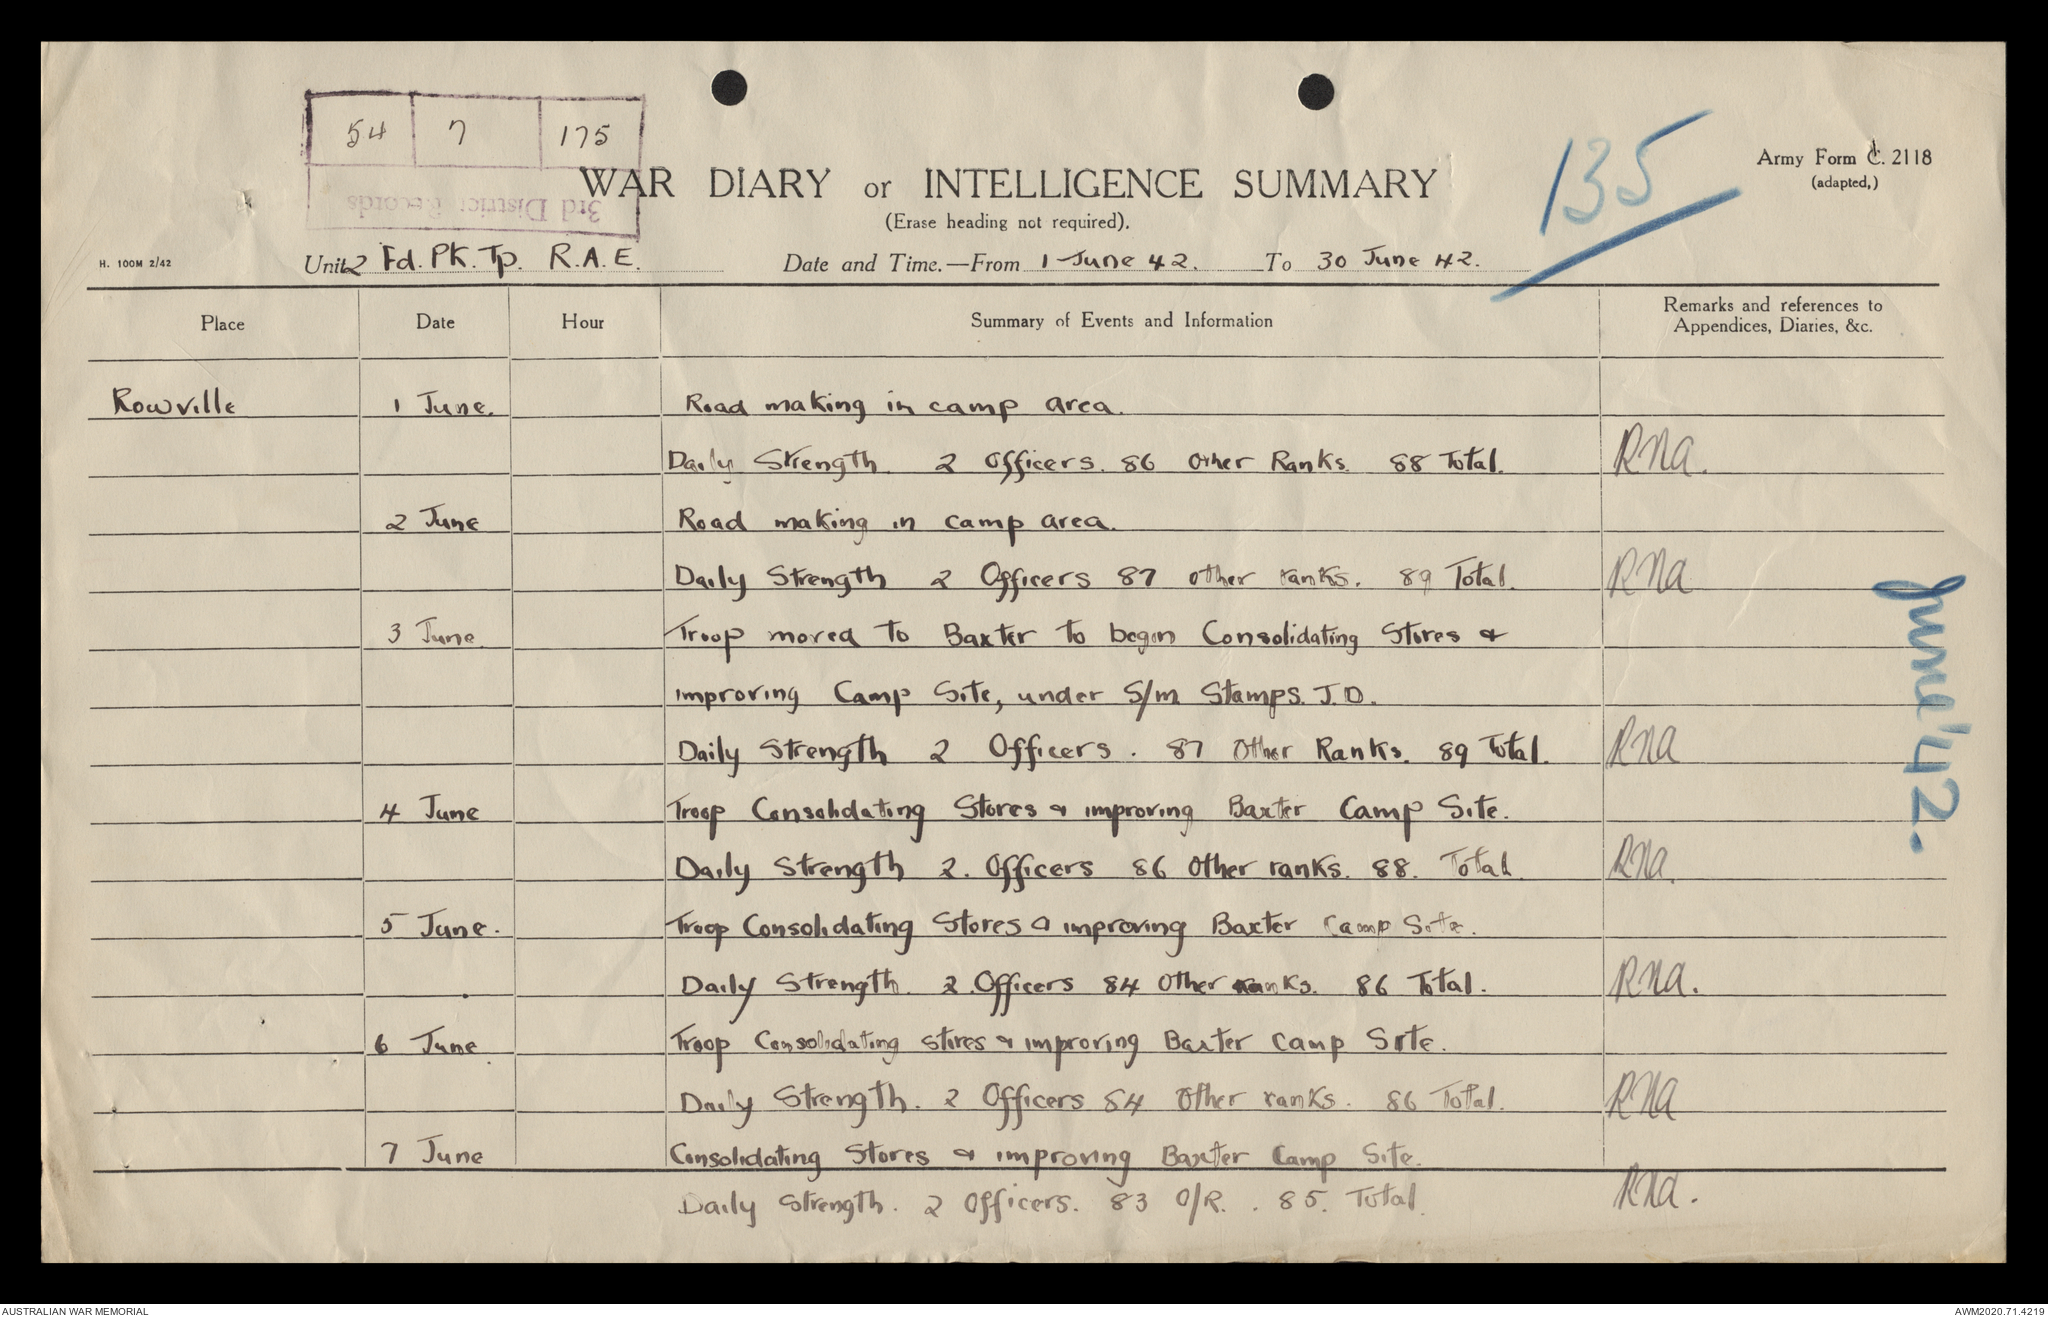 54 7 175
3rd District Records
135
Army Form C. 2118
(adapted,)
WAR DIARY or INTELLIGENCE SUMMARY
(Erase heading not required).
H. 100M 2/42
Unit 2 Fd. Pk. Tp. R.A.E. Date and Time.—From 1 June 42. To 30 June 42.
Place Date Hour Summary of Events and Information Remarks and references to
Appendices, Diaries, &c.
Rowville 1 June. Road making in camp area.
Daily Strength 2 Officers. 86 Other Ranks. 88 Total. RNA.
2 June Road making in camp area.
Daily Strength 2 Officers 87 other ranks. 89 Total. RNA
3 June. Troop moved to Baxter to begin Consolidating Stores &
improving Camp Site, under S/m Stamps. J.D.
Daily Strength 2 Officers. 87 Other Ranks. 89 Total. RNA
4 June Troop Consolidating Stores & improving Baxter Camp Site.
Daily Strength 2. Officers 86 Other ranks. 88. Total RNA.
5 June. Troop Consolidating Stores & improving Baxter Camp Site.
Daily Strength. 2 Officers 84 Other ranks. 86 Total. RNA.
6 June. Troop Consolidating stores & improving Baxter Camp Site.
Daily Strength. 2 Officers 84 Other ranks. 86 Total. RNA
7 June Consolidating Stores & improving Baxter Camp Site.
Daily Strength. 2 Officers. 83 O/R. . 85. Total. RNA.
June '42.
AUSTRALIAN WAR MEMORIAL AWM2020.71.4219